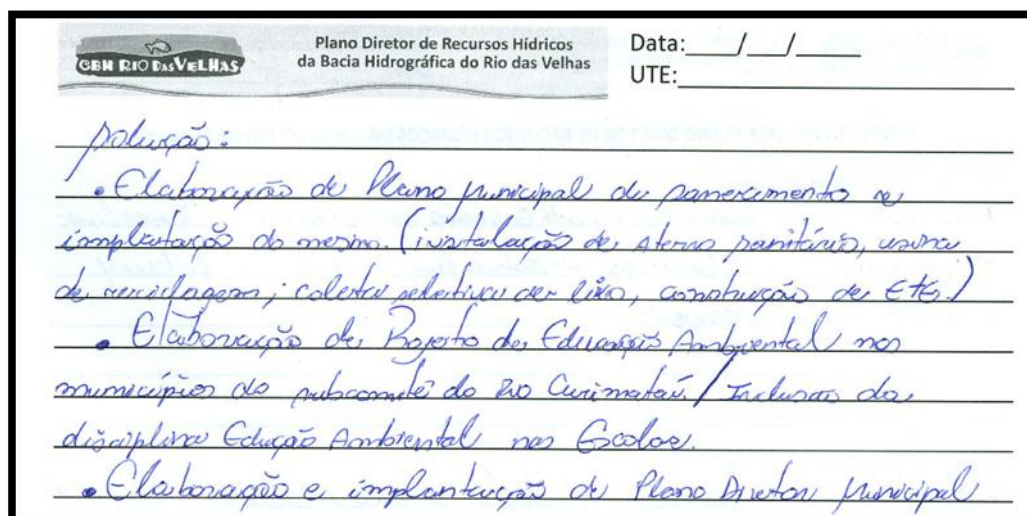 CBH RIO DAS VELHAS
Plano Diretor de Recursos Hídricos
da Bacia Hidrográfica do Rio das Velhas
Data:____/___/_____
UTE:
Solução:
• Elaboração de Plano Municipal de saneamento e
implantação do mesmo. (instalação de aterro sanitário, usina
de reciclagem; coleta seletiva de lixo, construção de ETE.)
• Elaboração de Projeto de Educação Ambiental nos
municípios do subcomitê do Rio Curimataí. / Inclusão da
disciplina Edução Ambiental nas Escolas.
• Elaboração e implantação do Plano Diretor Municipal